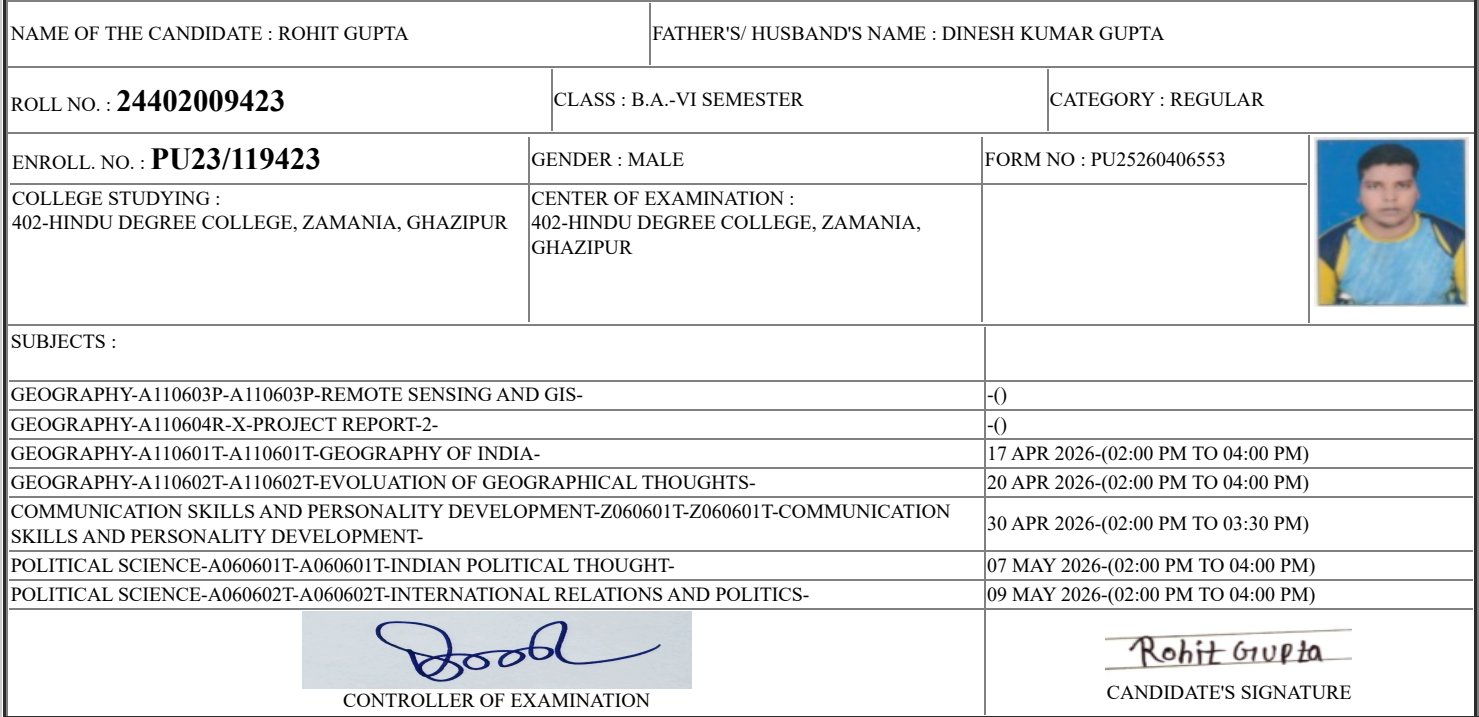 NAME OF THE CANDIDATE : ROHIT GUPTA
FATHER'S/ HUSBAND'S NAME : DINESH KUMAR GUPTA
ROLL NO. : 24402009423
CLASS : B.A.-VI SEMESTER
CATEGORY : REGULAR
ENROLL. NO. : PU23/119423
GENDER : MALE
FORM NO : PU25260406553
COLLEGE STUDYING :
402-HINDU DEGREE COLLEGE, ZAMANIA, GHAZIPUR
CENTER OF EXAMINATION :
402-HINDU DEGREE COLLEGE, ZAMANIA,
GHAZIPUR
SUBJECTS :
GEOGRAPHY-A110603P-A110603P-REMOTE SENSING AND GIS-
-()
GEOGRAPHY-A110604R-X-PROJECT REPORT-2-
-()
GEOGRAPHY-A110601T-A110601T-GEOGRAPHY OF INDIA-
17 APR 2026-(02:00 PM TO 04:00 PM)
GEOGRAPHY-A110602T-A110602T-EVOLUATION OF GEOGRAPHICAL THOUGHTS-
20 APR 2026-(02:00 PM TO 04:00 PM)
COMMUNICATION SKILLS AND PERSONALITY DEVELOPMENT-Z060601T-Z060601T-COMMUNICATION
SKILLS AND PERSONALITY DEVELOPMENT-
30 APR 2026-(02:00 PM TO 03:30 PM)
POLITICAL SCIENCE-A060601T-A060601T-INDIAN POLITICAL THOUGHT-
07 MAY 2026-(02:00 PM TO 04:00 PM)
POLITICAL SCIENCE-A060602T-A060602T-INTERNATIONAL RELATIONS AND POLITICS-
09 MAY 2026-(02:00 PM TO 04:00 PM)
CONTROLLER OF EXAMINATION
Rohit Gupta
CANDIDATE'S SIGNATURE